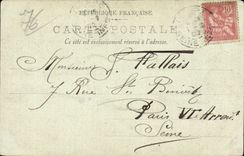 76
RÉPUBLIQUE FRANÇAISE
CARTE POSTALE
Ce côté est exclusivement réservé à l'adresse.
Monsieur J. Fallais
7 Rue St Benoit
Paris VI Arrond^t
Seine